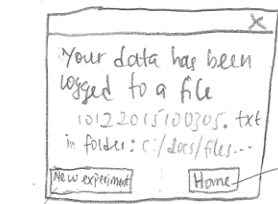 X
Your data has been
logged to a file
10122015100305.txt
in folder: C:/docs/files...
New experiment
Home